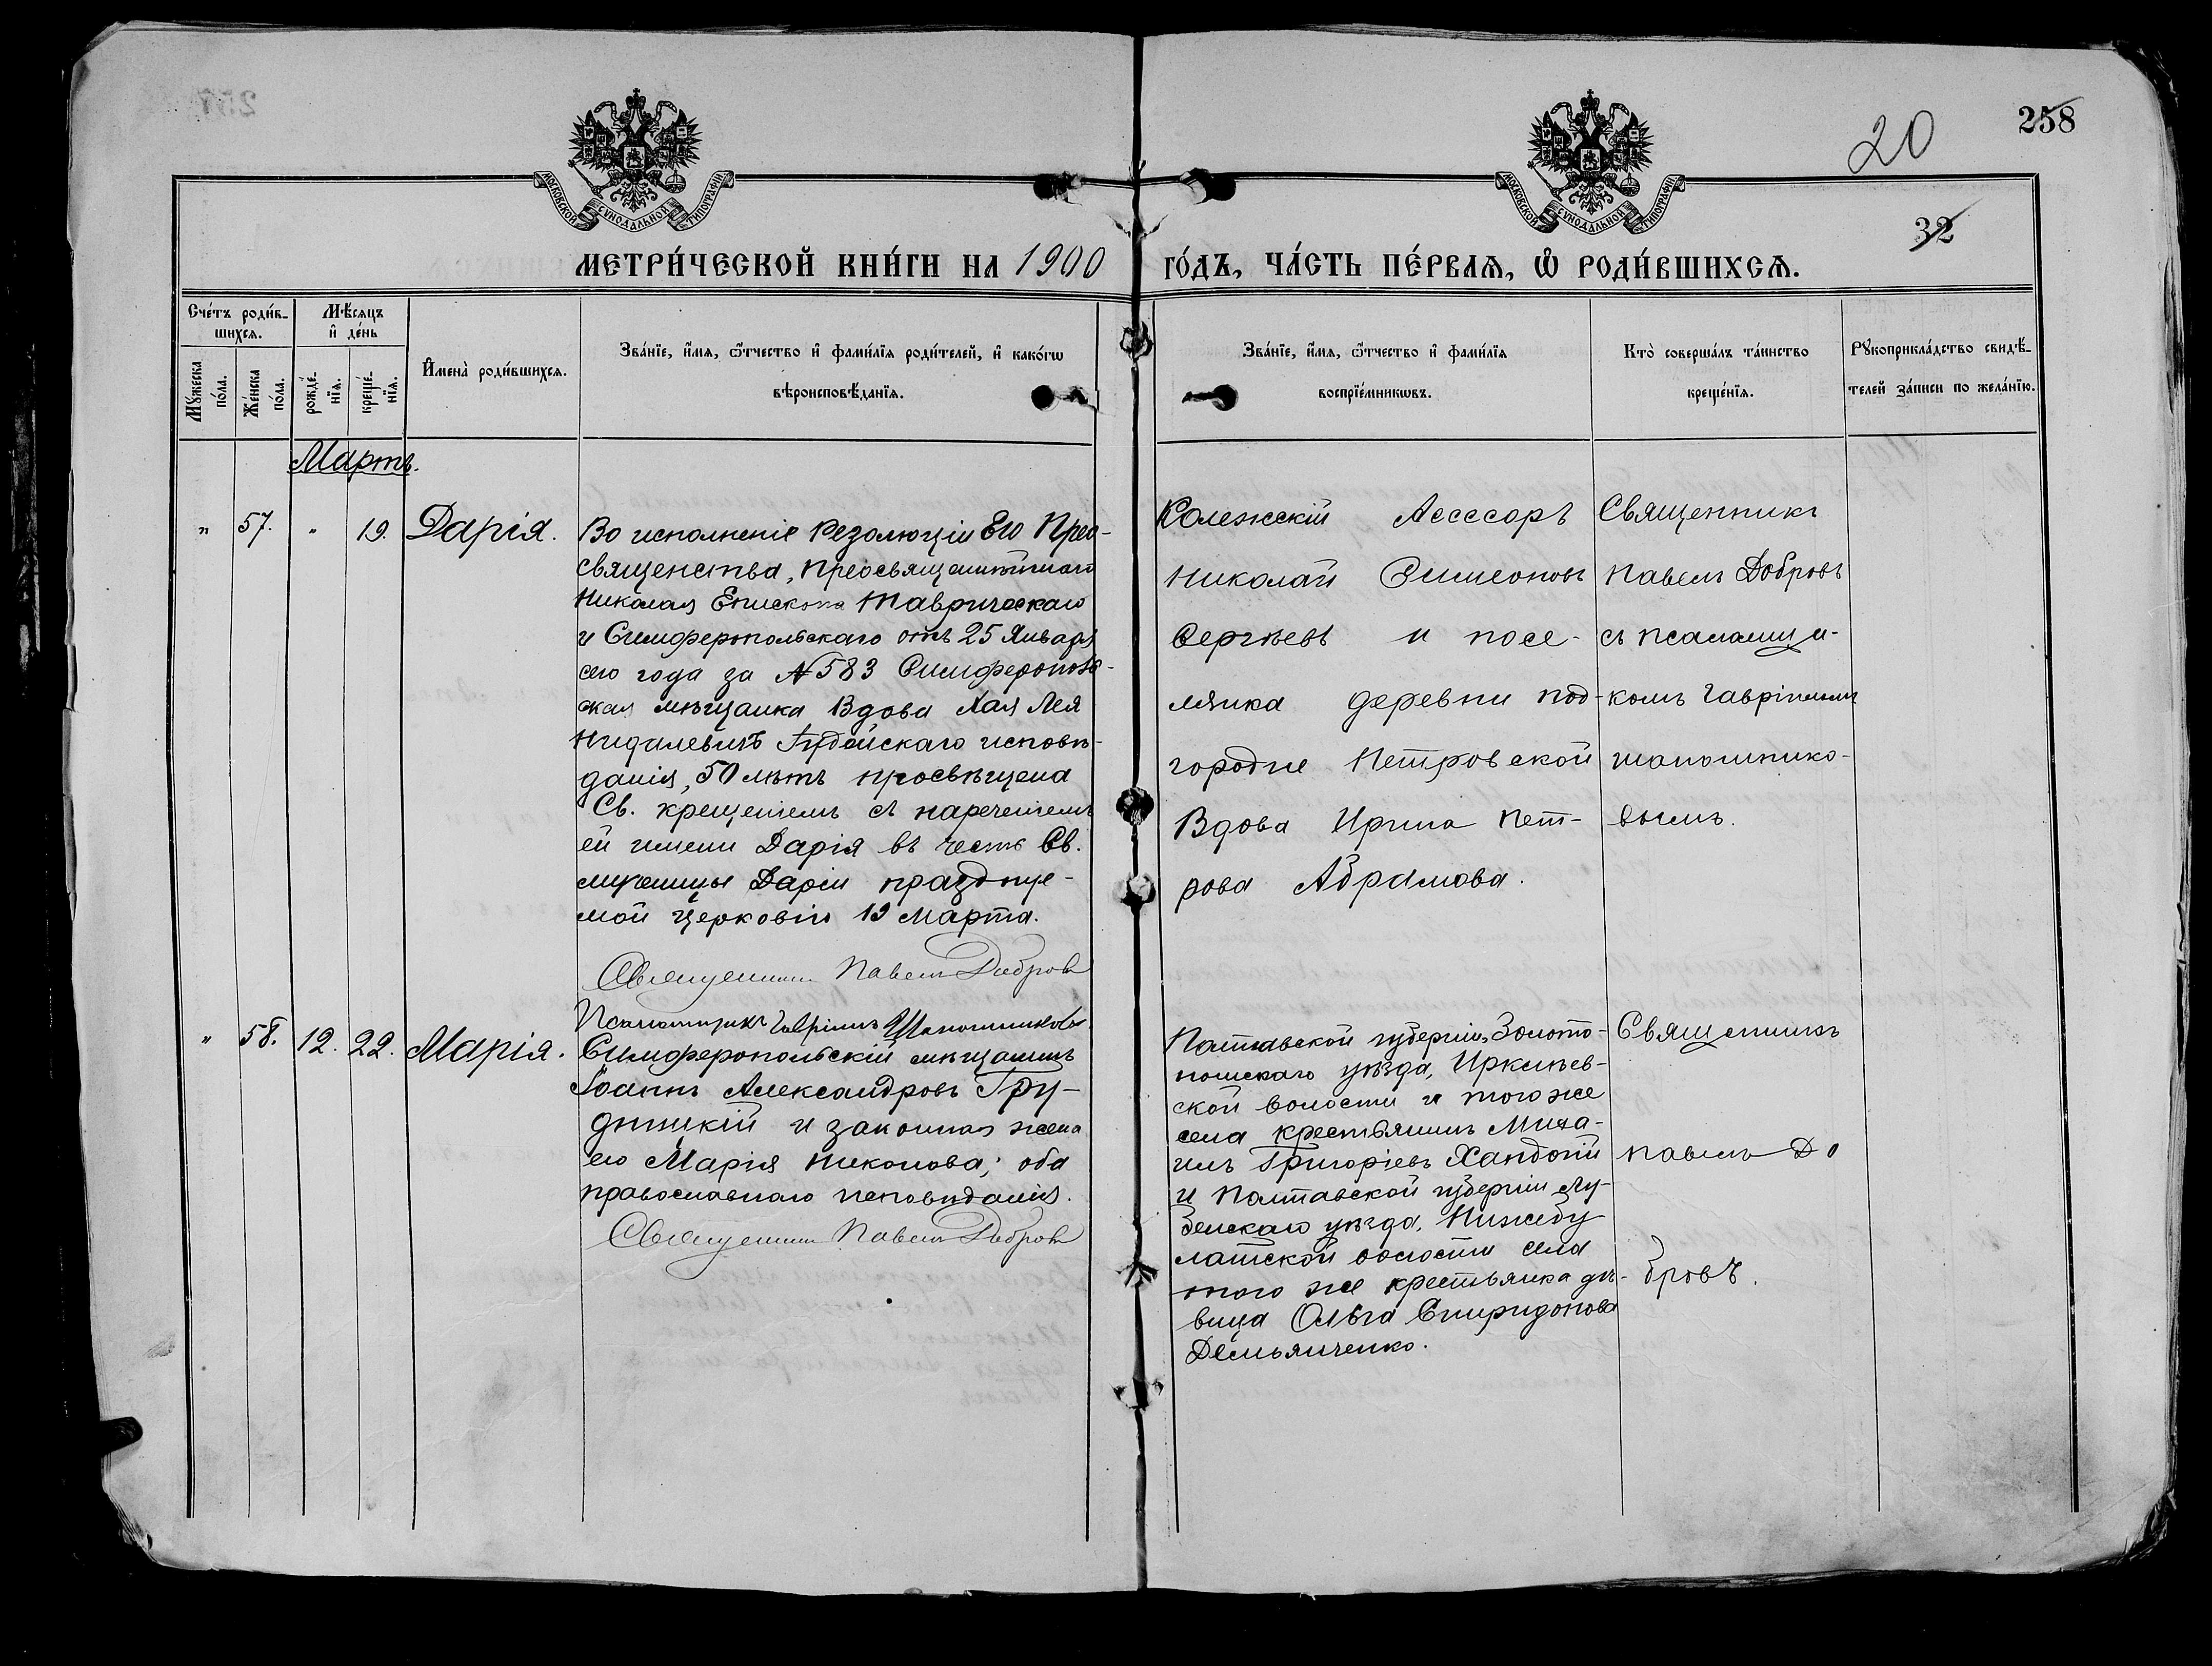 20
258
32
МОСКОВСКОЙ СѴНОДАЛЬНОЙ ТИПОГРАФІИ
МОСКОВСКОЙ СѴНОДАЛЬНОЙ ТИПОГРАФІИ
МЕТРИ́ЧЕСКОЙ КНИ́ГИ НА 1900 ГО́ДЪ, ЧА́СТЬ ПЕ́РВАѦ, Ѡ҆ РОДИ́ВШИХСѦ.
Сче́тъ роди́в-
шихсѧ.
Мꙋ́жеска
по́ла.
Же́нска
по́ла.
Мѣ́сѧцъ
и҆ де́нь
рожде́-
нїѧ.
креще́-
нїѧ.
И҆мена̀ роди́вшихсѧ.
Зва́нїе, и҆́мѧ, ѻ҆́тчество и҆ фами́лїѧ роди́телей, и҆ како́гѡ
вѣроисповѣ́данїѧ.
Зва́нїе, и҆́мѧ, ѻ҆́тчество и҆ фами́лїѧ
воспрїе́мникѡвъ.
Кто̀ соверша́лъ та́инство
креще́нїѧ.
Рꙋкоприкла́дство свидѣ́-
телей за́писи по жела́нїю.
Мартъ.
" 57. " 19. Дарія.
Во исполненіе Резолюціи Его Прео-
священства, Преосвященнѣйшаго
Николая Епископа Таврическаго
и Симферопольскаго отъ 25 Января
сего года за № 583 Симферополь-
ская мѣщанка Вдова Хая Лея
Іудейскаго исповѣ-
данія, 50 лѣтъ просвѣщена
Св. крещеніемъ съ нареченіемъ
ей имени Дарія въ честь Св.
мученицы Даріи праздпуе-
мой церковію 19 Марта.
Священникъ Павелъ Добровъ
Псаломщикъ Гавріилъ Шапошниковъ
Колежскій Асессоръ
Николай Симеоновъ
Сергѣевъ и посе-
лянка деревни под-
городне Петровской
Вдова Ирина Пет-
рова Абрамова.
Священникъ
Павелъ Добровъ
съ псаломщи-
комъ Гавріиломъ
шапошнико-
вымъ.
" 58. 12. 22. Марія.
Симферопольскій мѣщанинъ
Іоаннъ Александровъ Гру-
дницкій и законная жена
его Марія Никонова; оба
православнаго исповѣданія.
Священникъ Павелъ Добровъ
Полтавской губерніи, Золото-
ношскаго уѣзда, Ирклѣев-
ской волости и того же
села крестьянинъ Миха-
илъ Григоріевъ Хандогій
и Полтавской губерніи Лу-
бенскаго уѣзда, Нижебу
латской волости села
того же крестьянка дѣ-
вица Ольга Спиридонова
Демьянченко.
Священникъ
Павелъ До
бровъ.